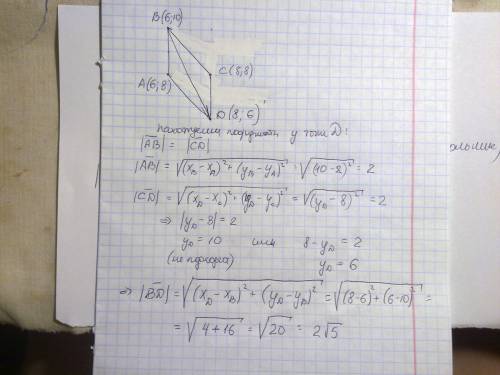 B(6;10)
C(8;8)
A(6;8)
D(8;6)
у точки D:
|AB| = |CD|
|AB| = √((x_B - x_A)² + (y_B - y_A)²) = √((10-8)²) = 2
|CD| = √((x_D - x_C)² + (y_D - y_C)²) = √((y_D - 8)²) = 2
⇒ |y_D - 8| = 2
y_D = 10 или 8 - y_D = 2
(не подходит) y_D = 6
⇒ |BD| = √((x_D - x_B)² + (y_D - y_B)²) = √((8-6)² + (6-10)²) =
= √(4+16) = √20 = 2√5